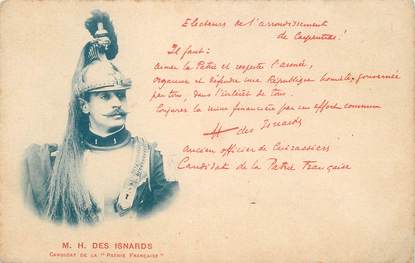 Electeurs de l'arrondissement
de Carpentras !
Il faut :
aimer la Patrie et respecter l'armée,
organiser et défendre une République honnête, gouvernée
par tous, dans l'intérêt de tous.
Conjurer la ruine financière par un effort commun
H des Isnards
Ancien officier de Cuirassiers
Candidat de la Patrie Française
M. H. DES ISNARDS
CANDIDAT DE LA "PATRIE FRANÇAISE"